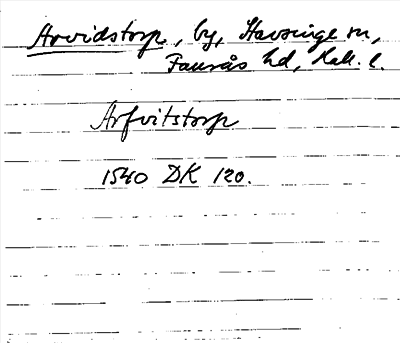 Arvidstorp, by, Stavsinge sn,
Faurås hd, Hall. l.
Arfvitstorp
1540 DK 120.